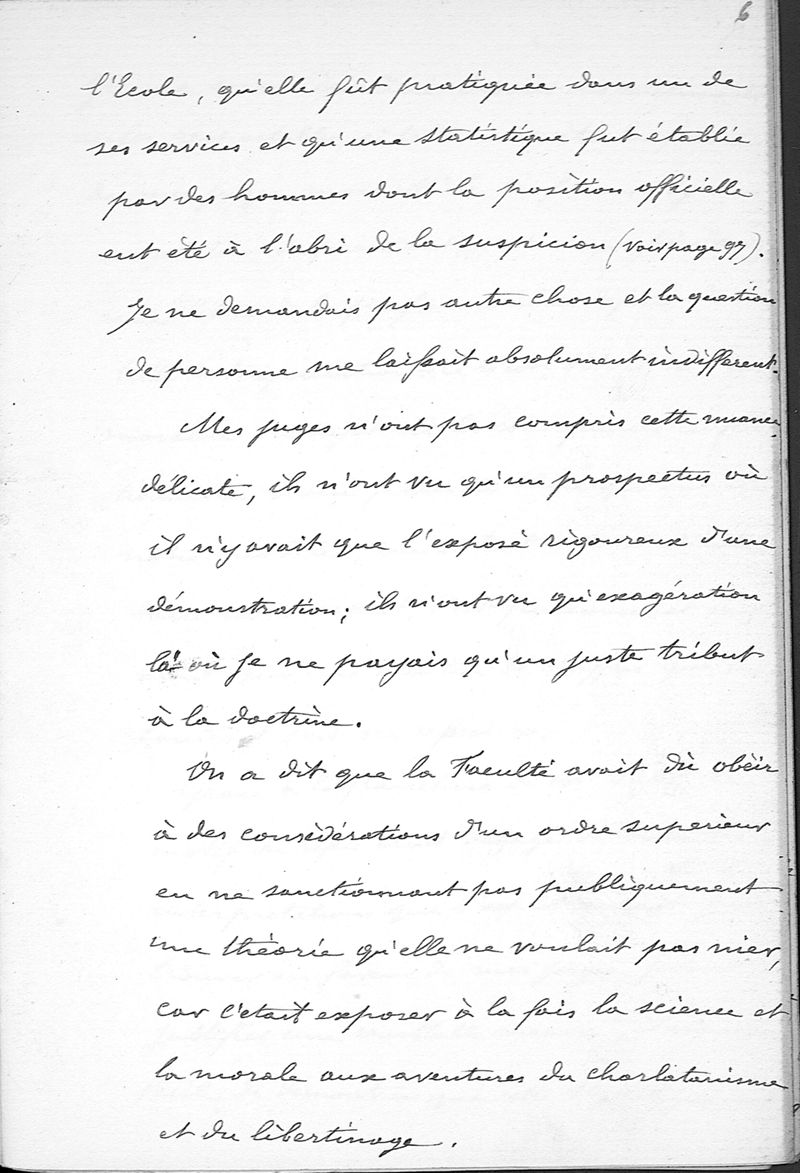 6
l'Ecole, qu'elle fût pratiquée dans un de
ses services et qu'une statistique fut établie
par des hommes dont la position officielle
eut été à l'abri de la suspicion (voir page 97).
Je ne demandais pas autre chose et la question
de personne me laissait absolument indifferent.
Mes juges n'ont pas compris cette nuance
délicate, ils n'ont vu qu'un prospectus où
il n'y avait que l'exposé rigoureux d'une
démonstration; ils n'ont vu qu'exagération
là où je ne payais qu'un juste tribut
à la doctrine.
On a dit que la Faculté avait dû obéir
à des considérations d'un ordre superieur
en ne sanctionnant pas publiquement
une théorie qu'elle ne voulait pas nier,
car c'etait exposer à la fois la science et
la morale aux aventures du charlatanisme
et du libertinage.